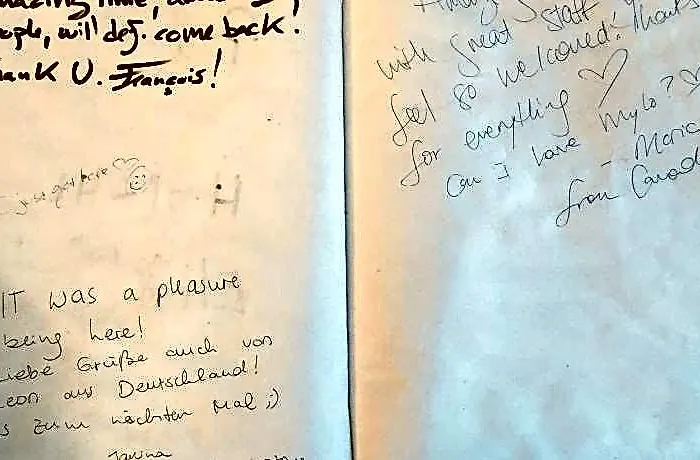 time,
ople, will def. come back!
ank U. François!
just got here
IT was a pleasure
being here!
Liebe Grüße auch von
Leon aus Deutschland!
s zum nächsten Mal ;)
Janina
with great staff
feel so welcomed! Thank
for everything ♡
Can I have Mylo?
- Maria
from Canad